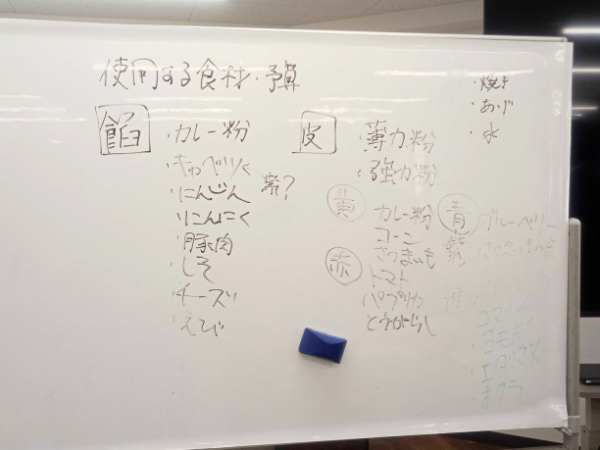 使用する食材・予算
餡
・カレー粉
・キャベツ
・にんじん
紫？
・にんにく
・豚肉
・しそ
・チーズ
・えび
皮
・薄力粉
・強力粉
黄
カレー粉
コーン
さつまいも
赤
トマト
パプリカ
とうがらし
・焼き
・あげ
・水
青
・ブルーベリー
紫
・ヨモギ
・エダマメ
・オクラ